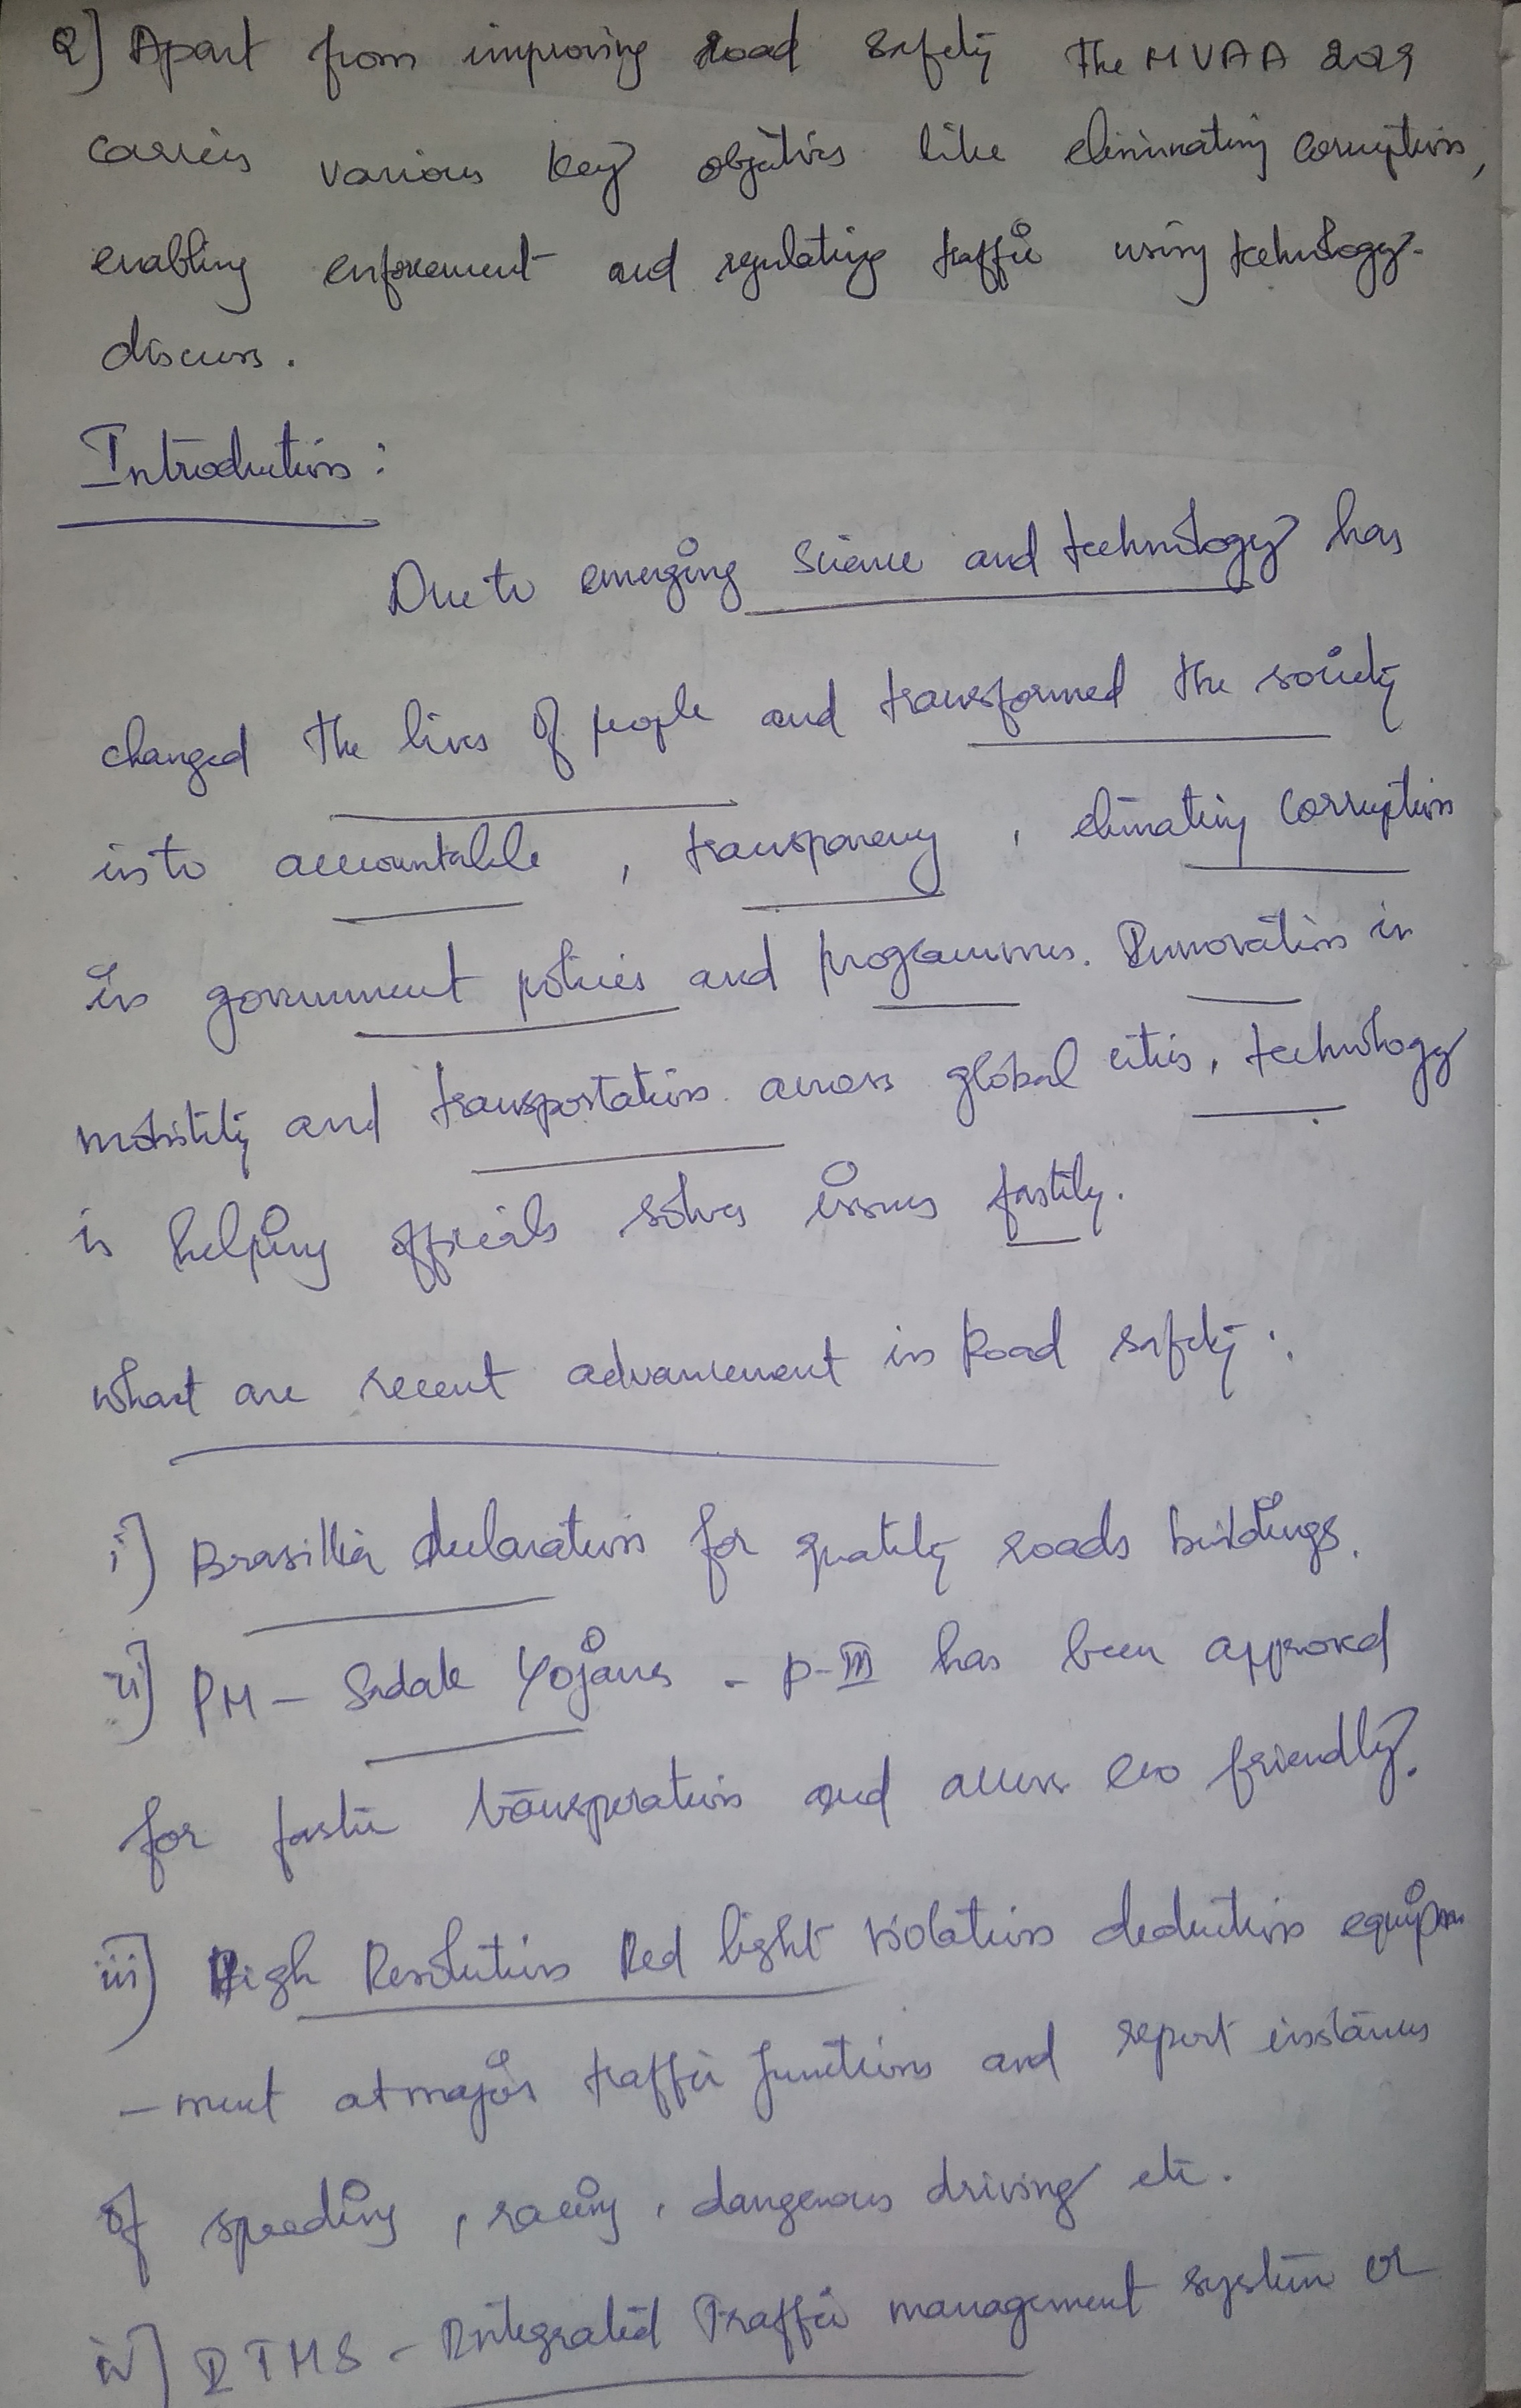 Q) Apart from improving road safety the MVAA 2019
carries various key objetives like eliminating corruption,
enabling enforcement and regulating traffic using technology.
discuss.
Introduction :
Due to emerging science and technology has
changed the lives of people and transformed the society
into accountable , transparency , elimating corruption
in government policies and programmes. Innovation in
mobility and transportation across global cities, technology
is helping officials solves issues fastly.
what are recent advancement in Road safety :
i) Brasillia declaration for quality roads buildings.
ii) PM - Sadak Yojana - P-III has been approved
for faster transporation and access eco friendly.
iii) High Resolution Red light violation deduction equipm
- ment at major traffic junctions and report instances
of speeding , racing , dangerous driving etc.
iv) ITMS - Integrated Traffic management system or